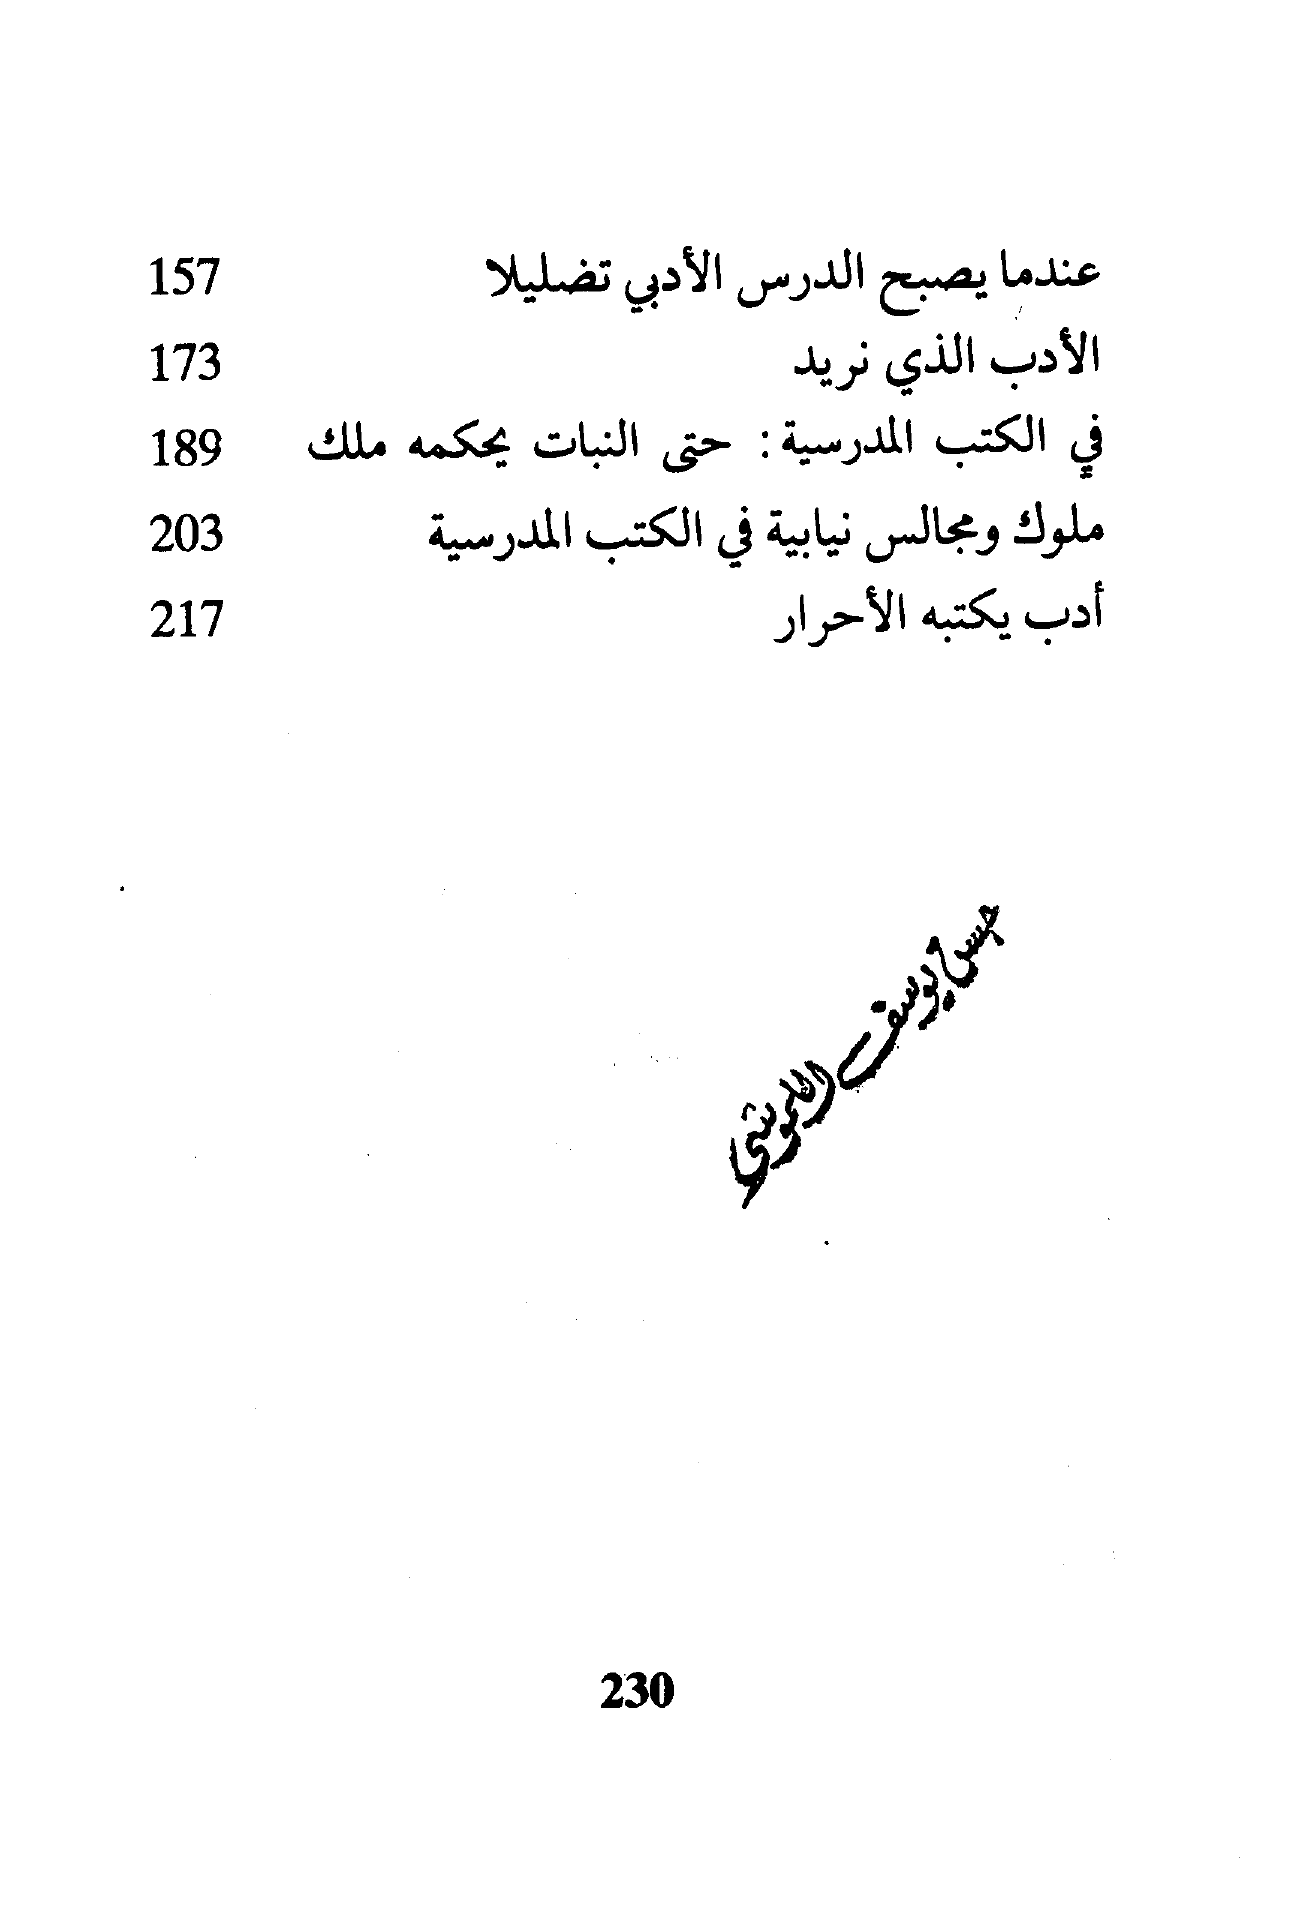 عندما يصبح الدرس الأدبي تضليلا 157
الأدب الذي نريد 173
في الكتب المدرسية : حتى النبات يحكمه ملك 189
ملوك ومجالس نيابية في الكتب المدرسية 203
أدب يكتبه الأحرار 217
يوسف
230